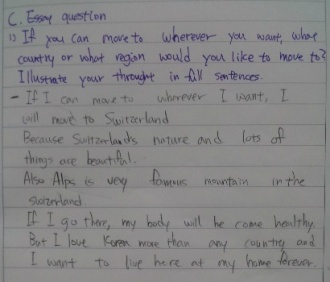 C. Essay question
1) If you can move to wherever you want, what
country or what region would you like to move to?
Illustrate your throught in full sentences.
- If I can move to wherever I want, I
will move to Switzerland
Because Switzerland's nature and lots of
things are beautiful.
Also Alps is very famous mountain in the
If I go there, my body will be come healthy.
But I love Korea more than any country and
I want to live here at my home forever.